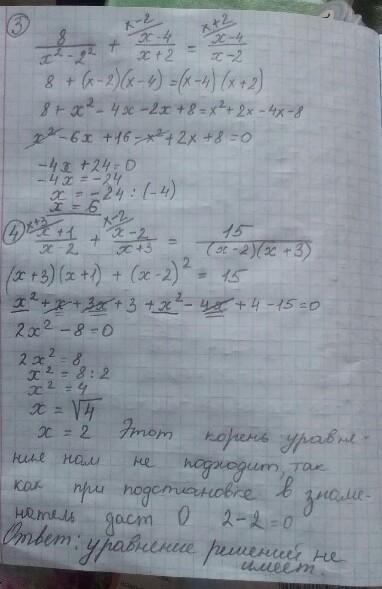 ③
8/(x²-2²) + x-2/ (x-4)/(x+2) = x+2/ (x-4)/(x-2)
8 + (x-2)(x-4) = (x-4)(x+2)
8 + x² - 4x - 2x + 8 = x² + 2x - 4x - 8
x² - 6x + 16 - x² + 2x + 8 = 0
-4x + 24 = 0
-4x = -24
x = -24 : (-4)
x = 6
④ x+3/ (x+1)/(x-2) + x-2/ (x-2)/(x+3) = 15/((x-2)(x+3))
(x+3)(x+1) + (x-2)² = 15
x² + x + 3x + 3 + x² - 4x + 4 - 15 = 0
2x² - 8 = 0
2x² = 8
x² = 8 : 2
x² = 4
x = √4
x = 2 Этот корень уравне-
ние нам не подходит, так
как при подстановке в знаме-
натель даст 0 2-2=0
Ответ: уравнение решений не
имеет.